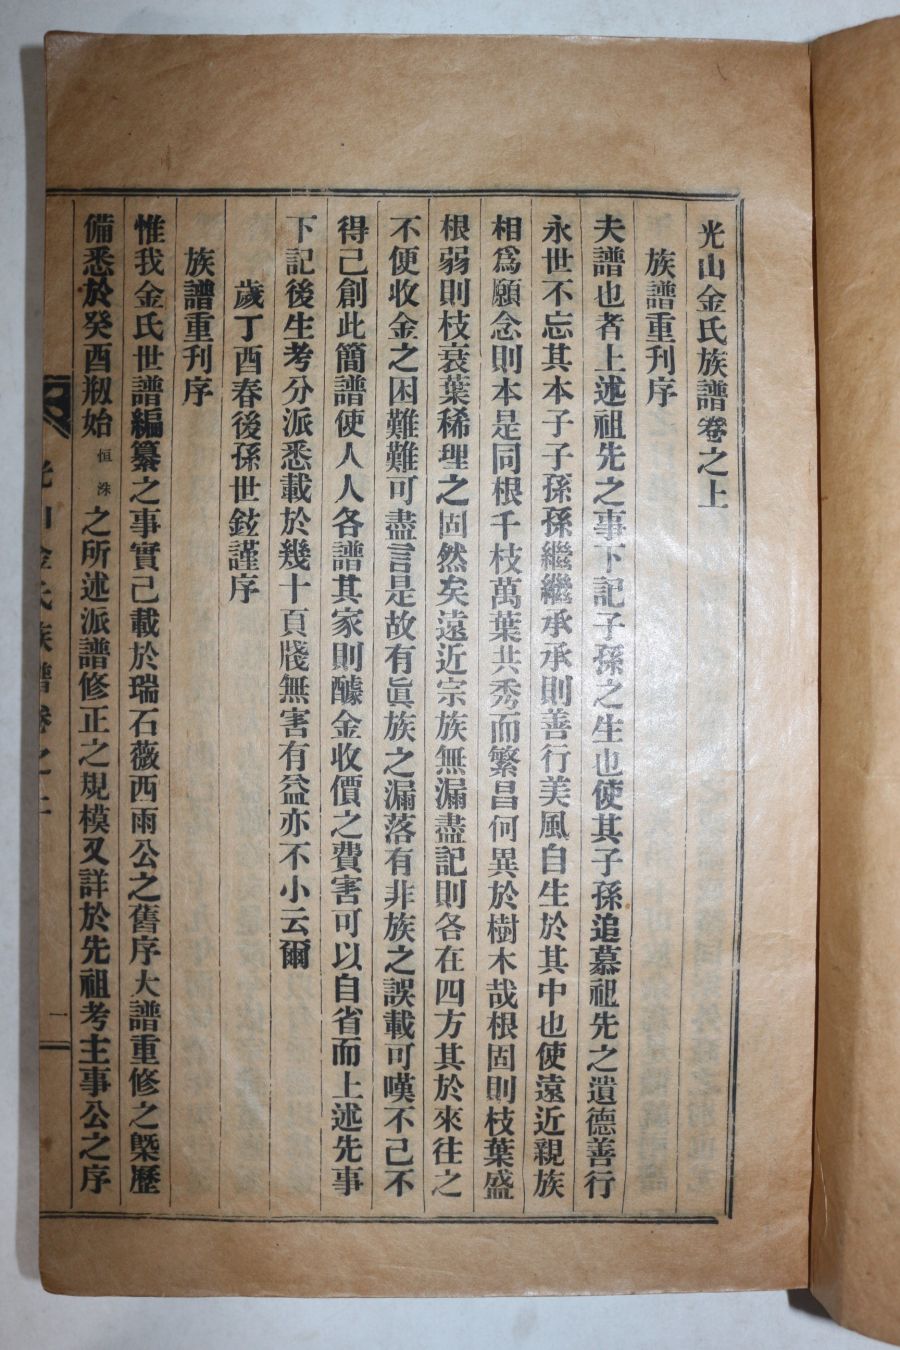 光山金氏族譜卷之上
族譜重刊序
夫譜也者上述祖先之事下記子孫之生也使其子孫追慕祖先之遺德善行
永世不忘其本子子孫孫繼繼承承則善行美風自生於其中也使遠近親族
相爲願念則本是同根千枝萬葉共秀而繁昌何異於樹木哉根固則枝葉盛
根弱則枝衰葉稀理之固然矣遠近宗族無漏盡記則各在四方其於來往之
不便收金之困難難可盡言是故有眞族之漏落有非族之誤載可嘆不己不
得己創此簡譜使人人各譜其家則醵金收價之費害可以自省而上述先事
下記後生考分派悉載於幾十頁牋無害有益亦不小云爾
歲丁酉春後孫世鉉謹序
族譜重刊序
惟我金氏世譜編纂之事實己載於瑞石薇西雨公之舊序大譜重修之槩歷
備悉於癸酉剏始恒洙之所述派譜修正之規模又詳於先祖考主事公之序
光山金氏族譜卷之上 一